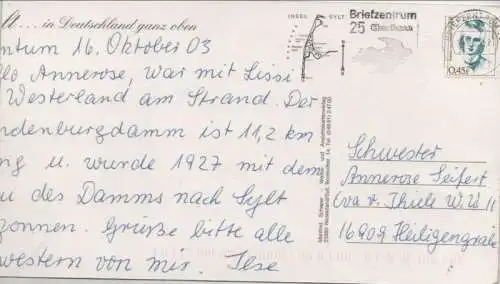 ... in Deutschland ganz oben
INSEL SYLT
Briefzentrum
25
0,45
16. Oktober 03
Annerose, war mit Lissi
Westerland am Strand. Der
ndenburgdamm ist 11,2 km
ng u. wurde 1927 mit dem
u des Damms nach Sylt
gonnen. Grüße bitte alle
western von mir. Ilse
Schwester
Annerose Seifert
Eva v. Thiele W. U 11
16909 Heiligengrabe